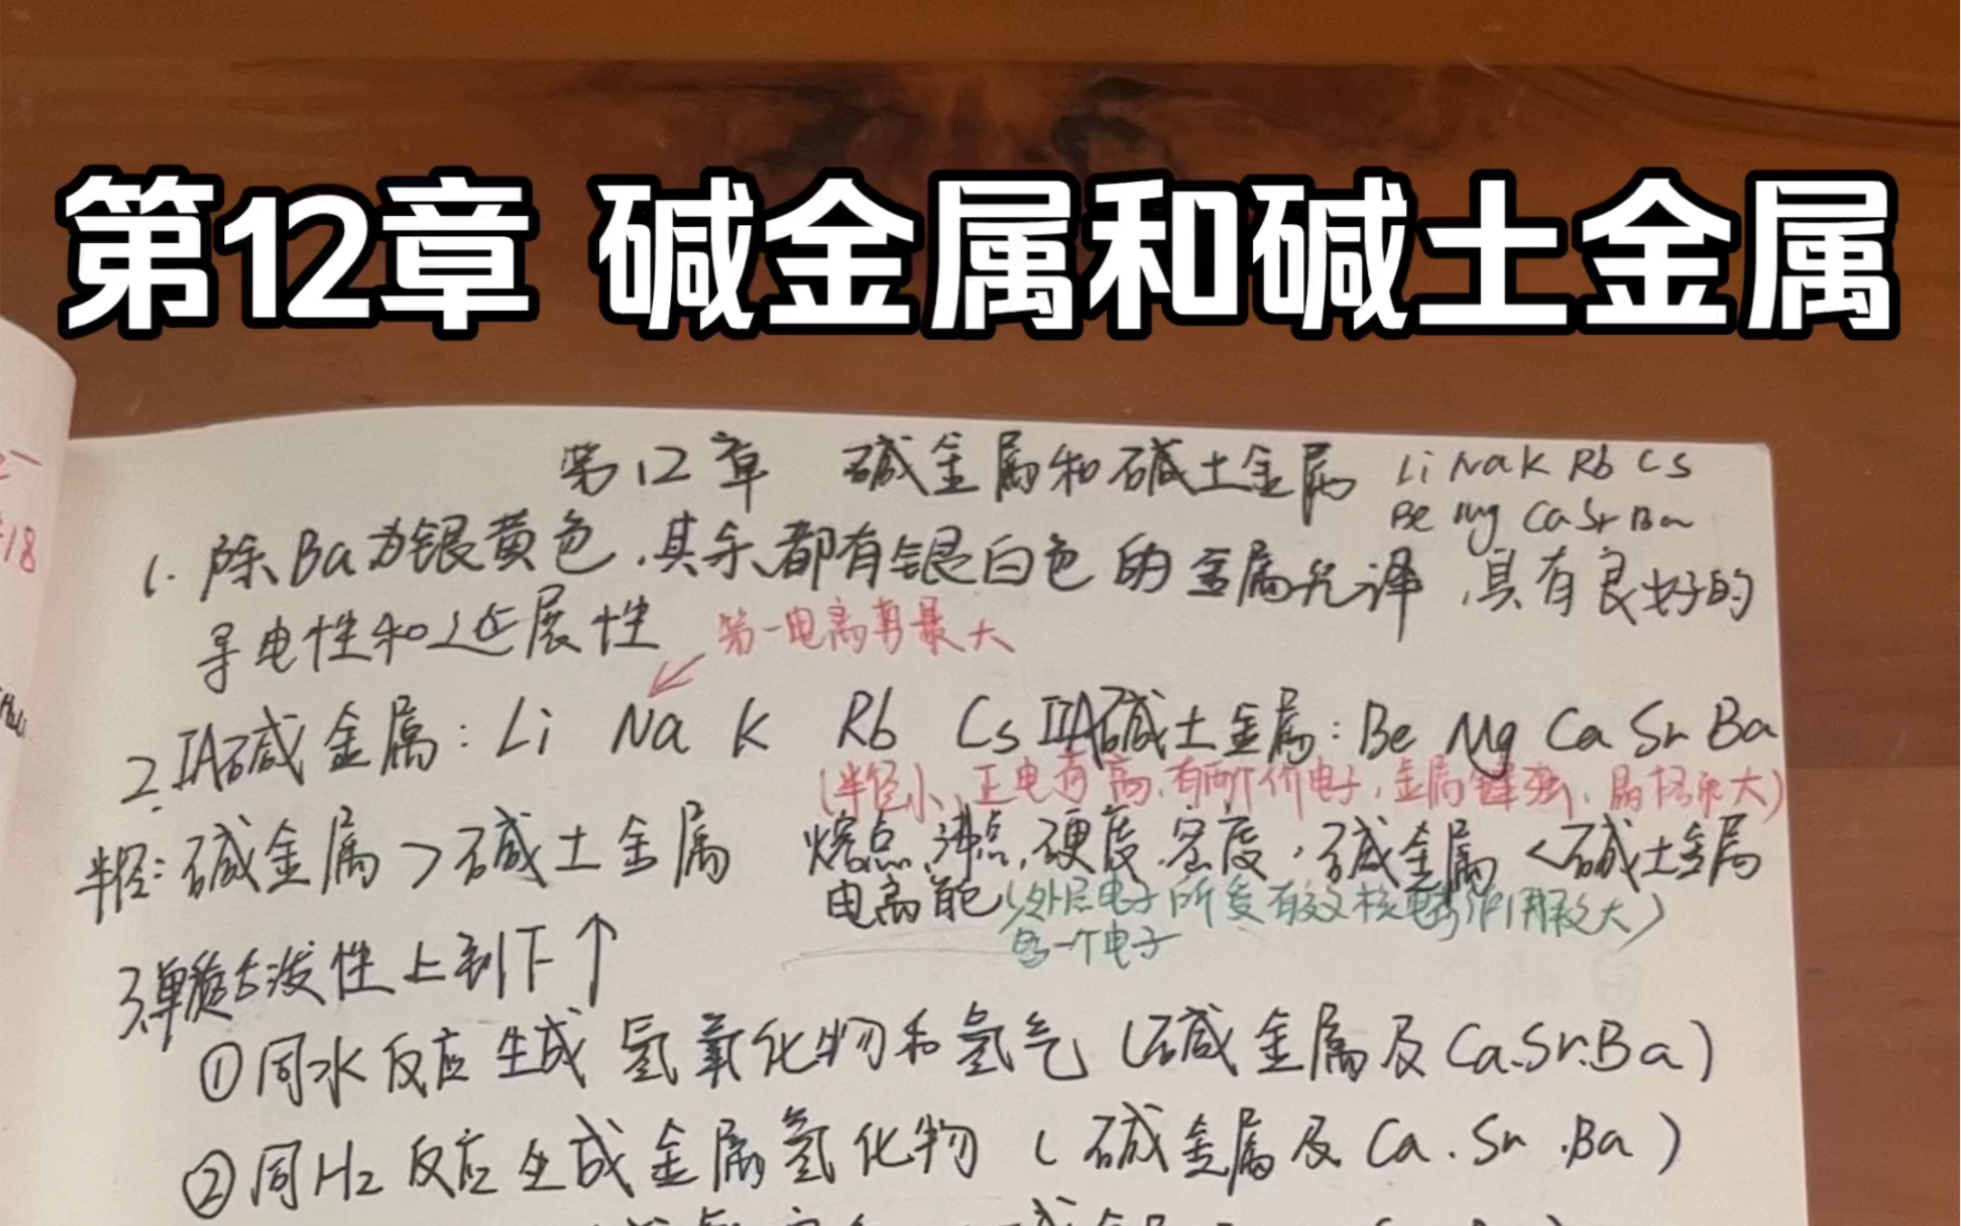 第12章 碱金属和碱土金属
第12章 碱金属和碱土金属 Li Na K Rb Cs
Be Mg Ca Sr Ba
1. 除Ba为银黄色,其余都有银白色的金属光泽,具有良好的
导电性和延展性
第一电离势最大
2. IA碱金属: Li Na K Rb Cs IIA碱土金属: Be Mg Ca Sr Ba
(半径小、正电荷高,有两个价电子,金属键强、晶格能大)
半径: 碱金属>碱土金属 熔点、沸点、硬度、密度,碱金属<碱土金属
电离能(外层电子所受有效核电荷作用较大)
另一个电子
3. 单质活泼性上到下↑
①同水反应生成氢氧化物和氢气(碱金属及Ca.Sr.Ba)
②同H2反应生成金属氢化物(碱金属及Ca.Sr.Ba)